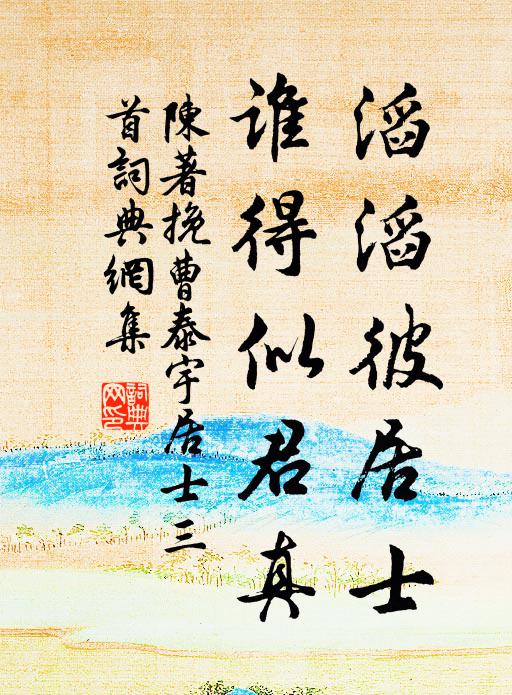 滔滔彼居士
誰得似君真
陳著挽曹泰宇居士三
首詞典網集
詞典
网印